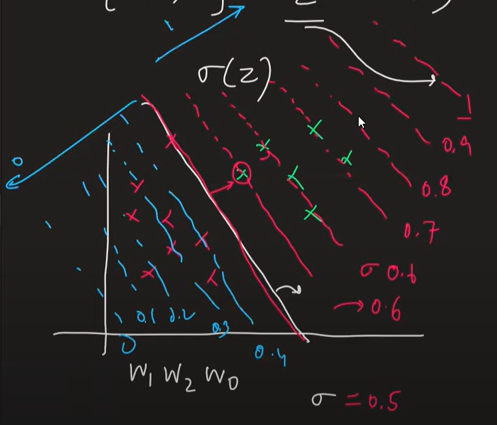 σ(z)
1
0.9
0.8
0.7
σ 0.6
→ 0.6
0
0.1 0.2
0.3
0.4
0
W₁ W₂ W₀
σ = 0.5